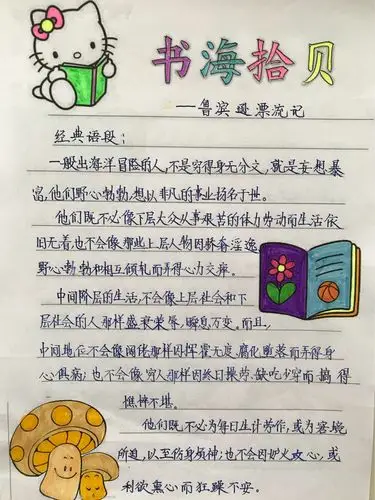 书海拾贝
——鲁滨逊漂流记
经典语段：
一般出海洋冒险的人，不是穷得身无分文，就是妄想暴
富，他们野心勃勃，想以非凡的事业扬名于世。
他们既不必像下层大众从事艰苦的体力劳动而生活依
旧无着，也不会像那些上层人物因骄奢淫逸
野心勃勃和相互倾轧而弄得心力交瘁。
中间阶层的生活，不会像上层社会和下
层社会的人那样盛衰荣辱，瞬息万变。而且，
中间地位不会像阔佬那样因挥霍无度、腐化堕落而弄得身
心俱病；也不会像穷人那样因终日操劳、缺吃少穿而搞得
憔悴不堪。
他们既不必为每日生计劳作，或为窘境
所迫，以至伤身烦神；也不会因妒火攻心，或
利欲熏心而狂躁不安。